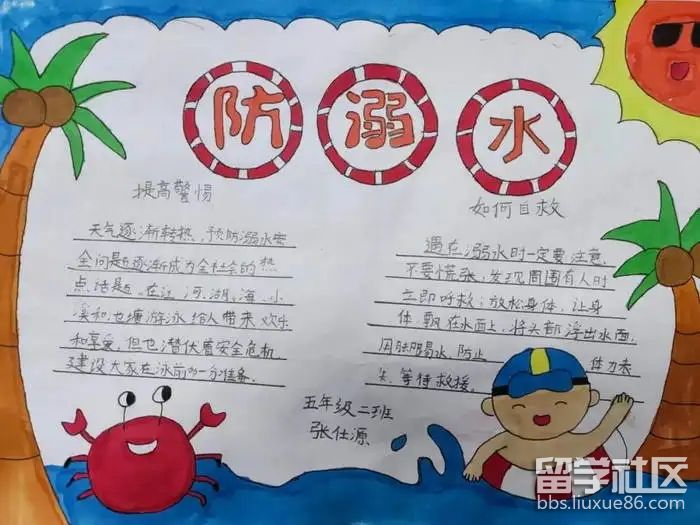 防溺水
提高警惕
天气逐渐转热，预防溺水安
全问题逐渐成为全社会的热
点话题。在江、河、湖、海、小
溪和池塘游泳给人带来欢乐
和享受，但也潜伏着安全危机
建设大家在泳前的一分准备。
如何自救
遇在溺水时一定要注意，
不要慌张，发现周围有人时
立即呼救；放松身体，让身
体飘在水面上，将头部浮出水面，
用脚踢水，防止体力丧
失，等待救援。
五年级二班
张仕源
留学社区
bbs.liuxue86.com